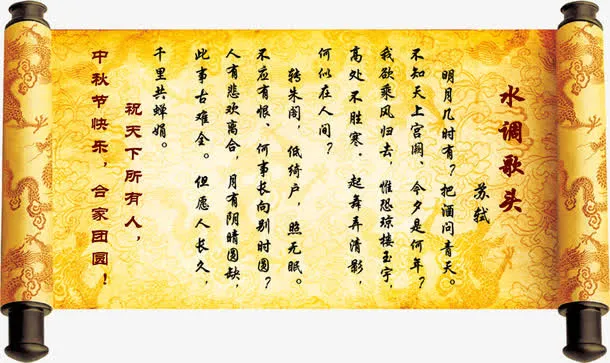 水调歌头
苏轼
明月几时有？把酒问青天。
不知天上宫阙、今夕是何年？
我欲乘风归去，惟恐琼楼玉宇，
高处不胜寒．起舞弄清影，
何似在人间？
转朱阁，低绮户，照无眠。
不应有恨、何事长向别时圆？
人有悲欢离合，月有阴晴圆缺，
此事古难全。但愿人长久，
千里共蝉娟。
祝天下所有人，
中秋节快乐，合家团圆！